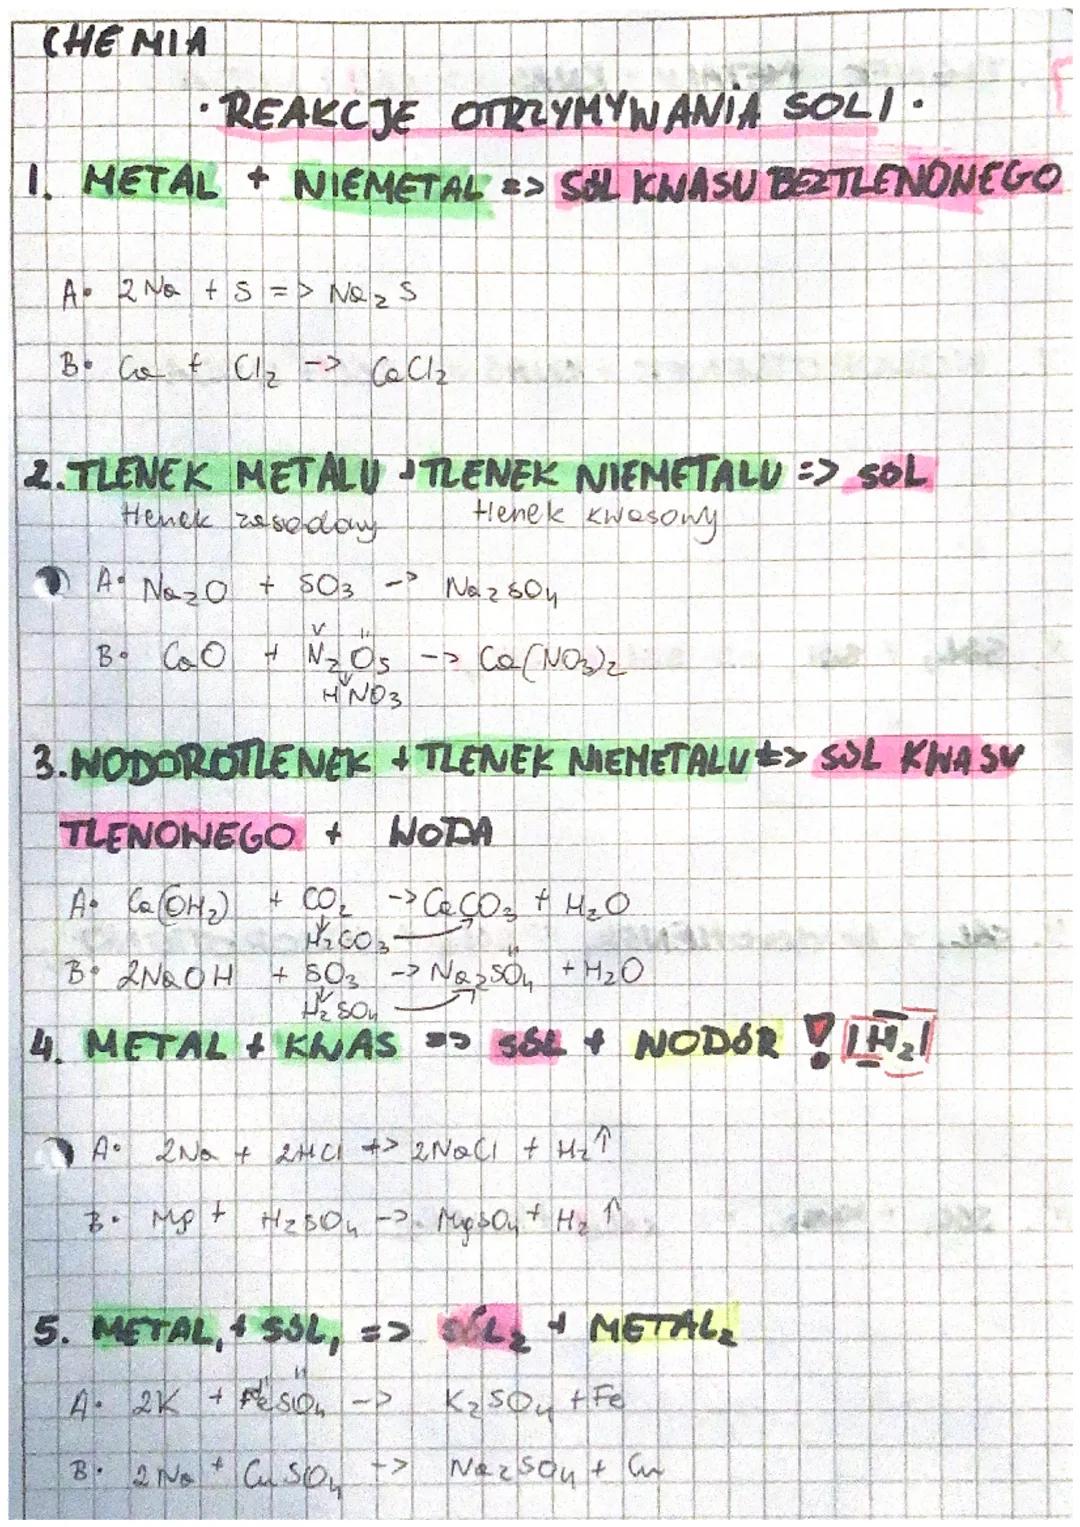 CHEMIA
· REAKCJE OTRZYMYWANIA SOLI ·
1. METAL + NIEMETAL => SÓL KWASU BEZTLENOWEGO
A• 2Na + S => Na₂S
B• Ca + Cl₂ -> CaCl₂
2. TLENEK METALU + TLENEK NIEMETALU => SOL
tlenek zasadowy tlenek kwasowy
A• Na₂O + SO₃ -> Na₂SO₄
V II
B• CaO + N₂O₅ -> Ca(NO₃)₂
HNO₃
3. WODOROTLENEK + TLENEK NIEMETALU => SÓL KWASU
TLENOWEGO + WODA
A• Ca(OH₂) + CO₂ -> CaCO₃ + H₂O
H₂CO₃
B• 2NaOH + SO₃ -> Na₂SO₄ + H₂O
H₂SO₄
4. METAL + KWAS => SÓL + WODÓR ! |H₂|
A• 2Na + 2HCl -> 2NaCl + H₂↑
B• Mg + H₂SO₄ -> MgSO₄ + H₂↑
5. METAL₁ + SÓL₁ => SÓL₂ + METAL₂
A• 2K + FeSO₄ -> K₂SO₄ + Fe
B• 2Na + CuSO₄ -> Na₂SO₄ + Cu